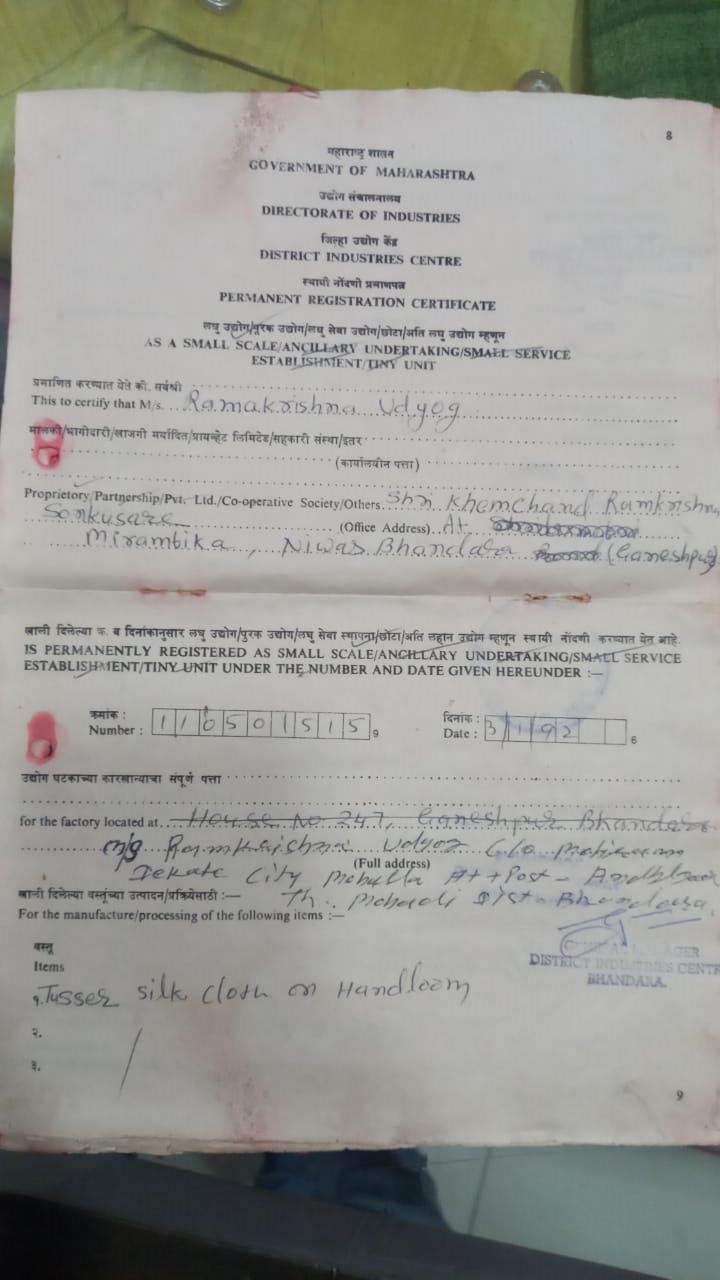 8
महाराष्ट्र शासन
GOVERNMENT OF MAHARASHTRA
उद्योग संचालनालय
DIRECTORATE OF INDUSTRIES
जिल्हा उद्योग केंद्र
DISTRICT INDUSTRIES CENTRE
स्थायी नोंदणी प्रमाणपत्र
PERMANENT REGISTRATION CERTIFICATE
लघु उद्योग/पुरक उद्योग/लघु सेवा उद्योग/छोटा/अति लघु उद्योग म्हणून
AS A SMALL SCALE/ANCILLARY UNDERTAKING/SMALL SERVICE
ESTABLISHMENT/TINY UNIT
प्रमाणित करण्यात येते की. सर्वश्री
This to certify that M/s. Ramakrishna Udyog
मालकी/भागीदारी/खाजगी मर्यादित/प्रायव्हेट लिमिटेड/सहकारी संस्था/इतर
(कार्यालयीन पत्ता)
Proprietory/Partnership/Pvt. Ltd./Co-operative Society/Others. Shri Khemchand Ramkrishna
Sonkusare (Office Address) At.
Mirambika, Niwas Bhandara (Ganeshpur)
खाली दिलेल्या क्र. व दिनांकानुसार लघु उद्योग/पुरक उद्योग/लघु सेवा स्थापना/छोटा/अति लहान उद्योग म्हणून स्थायी नोंदणी करण्यात येत आहे.
IS PERMANENTLY REGISTERED AS SMALL SCALE/ANCILLARY UNDERTAKING/SMALL SERVICE
ESTABLISHMENT/TINY UNIT UNDER THE NUMBER AND DATE GIVEN HEREUNDER :—
क्रमांक : दिनांक :
Number : 1 1 0 5 0 1 5 1 5 9 Date : 3/1 92 6
उद्योग घटकाच्या कारखान्याचा संपूर्ण पत्ता
for the factory located at House No 247, Ganeshpur Bhandara
m/s Ramkrishna Udyog C/o Motiram
(Full address)
City Mohulla At + Post - Andhlgaon
खाली दिलेल्या वस्तूंच्या उत्पादन/प्रक्रियेसाठी :— Th. Mohadi Dist Bhandara
For the manufacture/processing of the following items :—
वस्तू
Items
DISTRICT INDUSTRIES CENTRE
BHANDARA.
१. Tusser silk cloth on Handloom
२.
३.
9